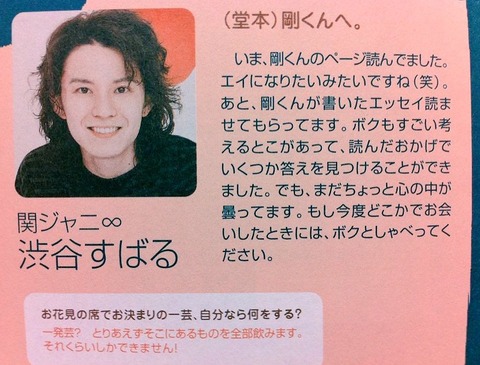 (堂本)剛くんへ。
いま、剛くんのページ読んでました。
エイになりたいみたいですね(笑)。
あと、剛くんが書いたエッセイ読ま
せてもらってます。ボクもすごい考
えるとこがあって、読んだおかげで
いくつか答えを見つけることができ
ました。でも、まだちょっと心の中が
曇ってます。もし今度どこかでお会
いしたときには、ボクとしゃべってく
ださい。
関ジャニ∞
渋谷すばる
お花見の席でお決まりの一芸、自分なら何をする?
一発芸? とりあえずそこにあるものを全部飲みます。
それくらいしかできません!